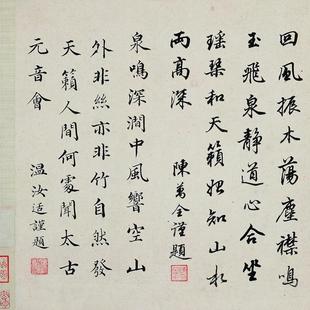 回風振木蕩塵襟鳴
玉飛泉靜道心合坐
瑤琴和天籟始知山水
兩高深
陳萬全謹題
泉鳴深澗中風響空山
外非絲亦非竹自然發
天籟人間何處聞太古
元音會
溫汝适謹題